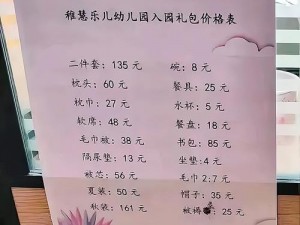 稚慧乐儿幼儿园入园礼包价格表
二件套：135 元
枕头：60 元
枕巾：27 元
软席：48 元
毛巾被：38 元
隔尿垫：13 元
被芯：56 元
夏装：50 元
秋装：161 元
碗：8 元
餐具：25 元
水杯：5 元
餐盘：18 元
书包：85 元
坐垫：4 元
毛巾 2:7 元
帽子：35 元
被褥：25 元